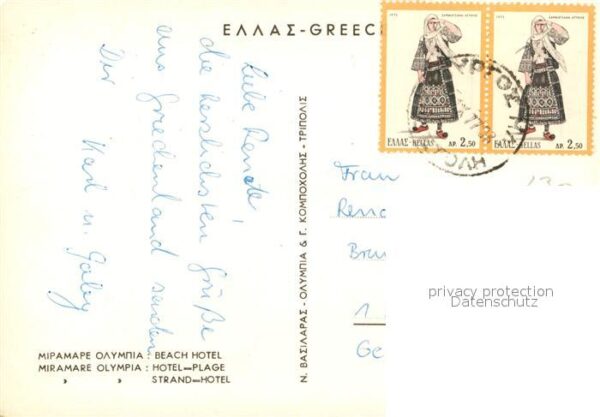 ΕΛΛΑΣ-GREECE
Liebe Renate,
die herzlichsten Grüße
aus Griechenland senden
Dir Karl u. Gaby
ΜΙΡΑΜΑΡΕ ΟΛΥΜΠΙΑ : BEACH HOTEL
MIRAMARE OLYMPIA : HOTEL-PLAGE
» » STRAND-HOTEL
Ν. ΒΑΣΙΛΑΡΑΣ - ΟΛΥΜΠΙΑ & Γ. ΚΟΜΠΟΧΟΛΗΣ - ΤΡΙΠΟΛΙΣ
ΕΛΛΑΣ-HELLAS ΔΡ. 2,50
ΕΛΛΑΣ-HELLAS ΔΡ. 2,50
ΠΥΡΓΟΣ
Frau
Rena
1
Ge
privacy protection
Datenschutz